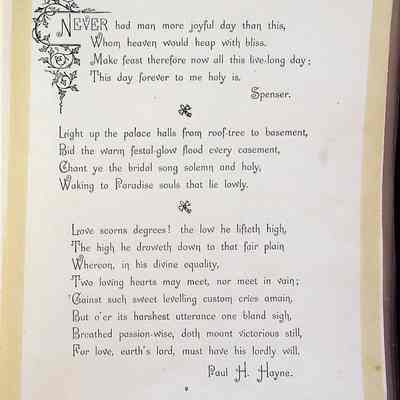 NEVER had man more joyful day than this,
Whom heaven would heap with bliss.
Make feast therefore now all this live-long day;
This day forever to me holy is.
Spenser.
Light up the palace halls from roof-tree to basement,
Bid the warm festal-glow flood every casement,
Chant ye the bridal song solemn and holy,
Waking to Paradise souls that lie lowly.
Love scorns degrees! the low he lifteth high,
The high he draweth down to that fair plain
Whereon, in his divine equality,
Two loving hearts may meet, nor meet in vain;
'Gainst such sweet levelling custom cries amain,
But o'er its harshest utterance one bland sigh,
Breathed passion-wise, doth mount victorious still,
For love, earth's lord, must have his lordly will.
Paul H. Hayne.